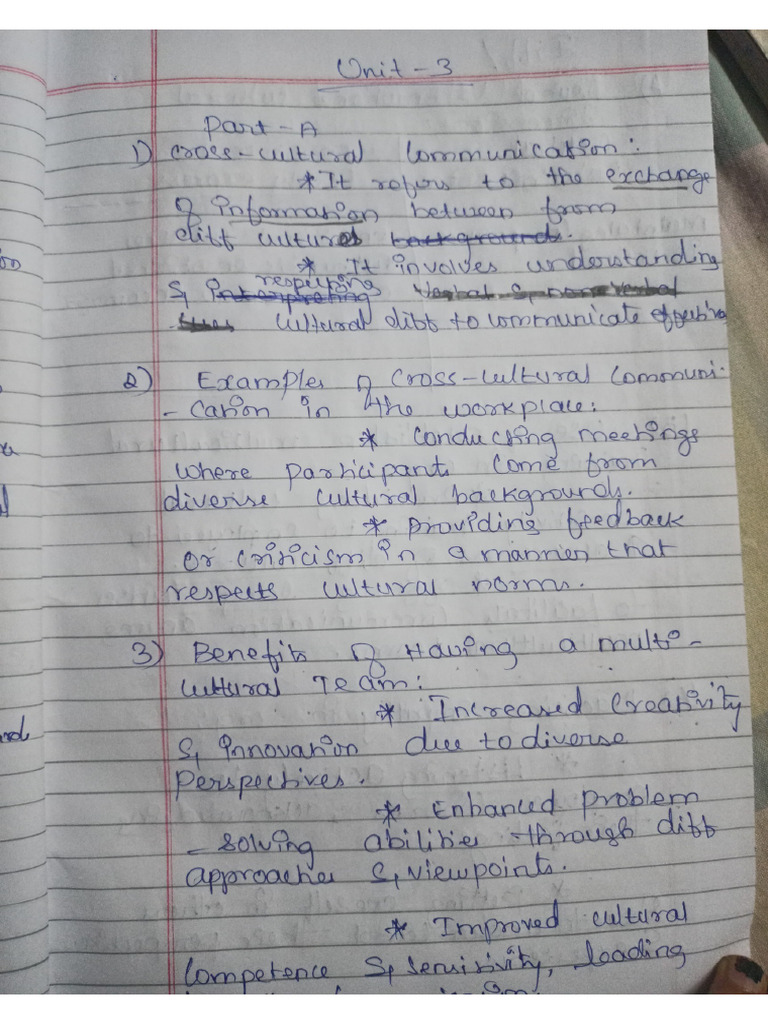 Unit - 3
Part - A
1) Cross-cultural Communication:
* It refers to the exchange
of information between from
diff cultures backgrounds.
* It involves understanding
respecting
& Interpreting verbal & non verbal
cultural diff to communicate effective
2) Examples of Cross-cultural Communi-
- cation in the workplace:
* Conducting meetings
where participants come from
diverise cultural backgrounds.
* providing feedback
or criticism in a manner that
respects cultural norms.
3) Benefits of Having a multi-
cultural Team:
* Increased Creativity
& innovation due to diverse
perspectives.
* Enhanced problem
- solving abilities through diff
approaches & viewpoints.
* Improved cultural
Competence & sensitivity, leading